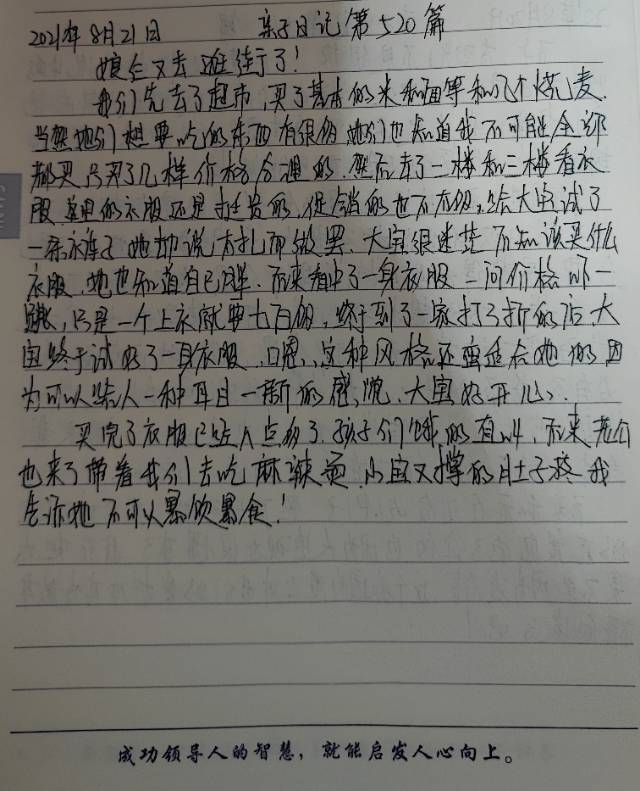 2021年8月21日 亲子日记第520篇
娘仨又去逛街了!
我们先去了超市,买了基本的米和面等和几个烧麦.
当然她们想要吃的东西有很多她们也知道我不可能全部
都买只买了几样价格合理的.然后去了一楼和三楼看衣
服.单的衣服还是挺贵的,促销的也不太多,给大宝试了
一条裤子她却说太扎而做罢.大宝很迷茫不知该买什么
衣服.她也知道自己胖.后来看中了一身衣服一问价格吓一
跳,只是一个上衣就要七百多,终于到了一家打了折的店.大
宝终于试好了一身衣服.口恩,这种风格还蛮适合她的因
为可以给人一种耳目一新的感觉.大宝好开心.
买完了衣服已经八点多了.孩子们饿的直叫.后来老公
也来了带着我们去吃麻辣烫.小宝又撑的肚子疼我
告诉她不可以暴饮暴食!
成功领导人的智慧,就能启发人心向上。